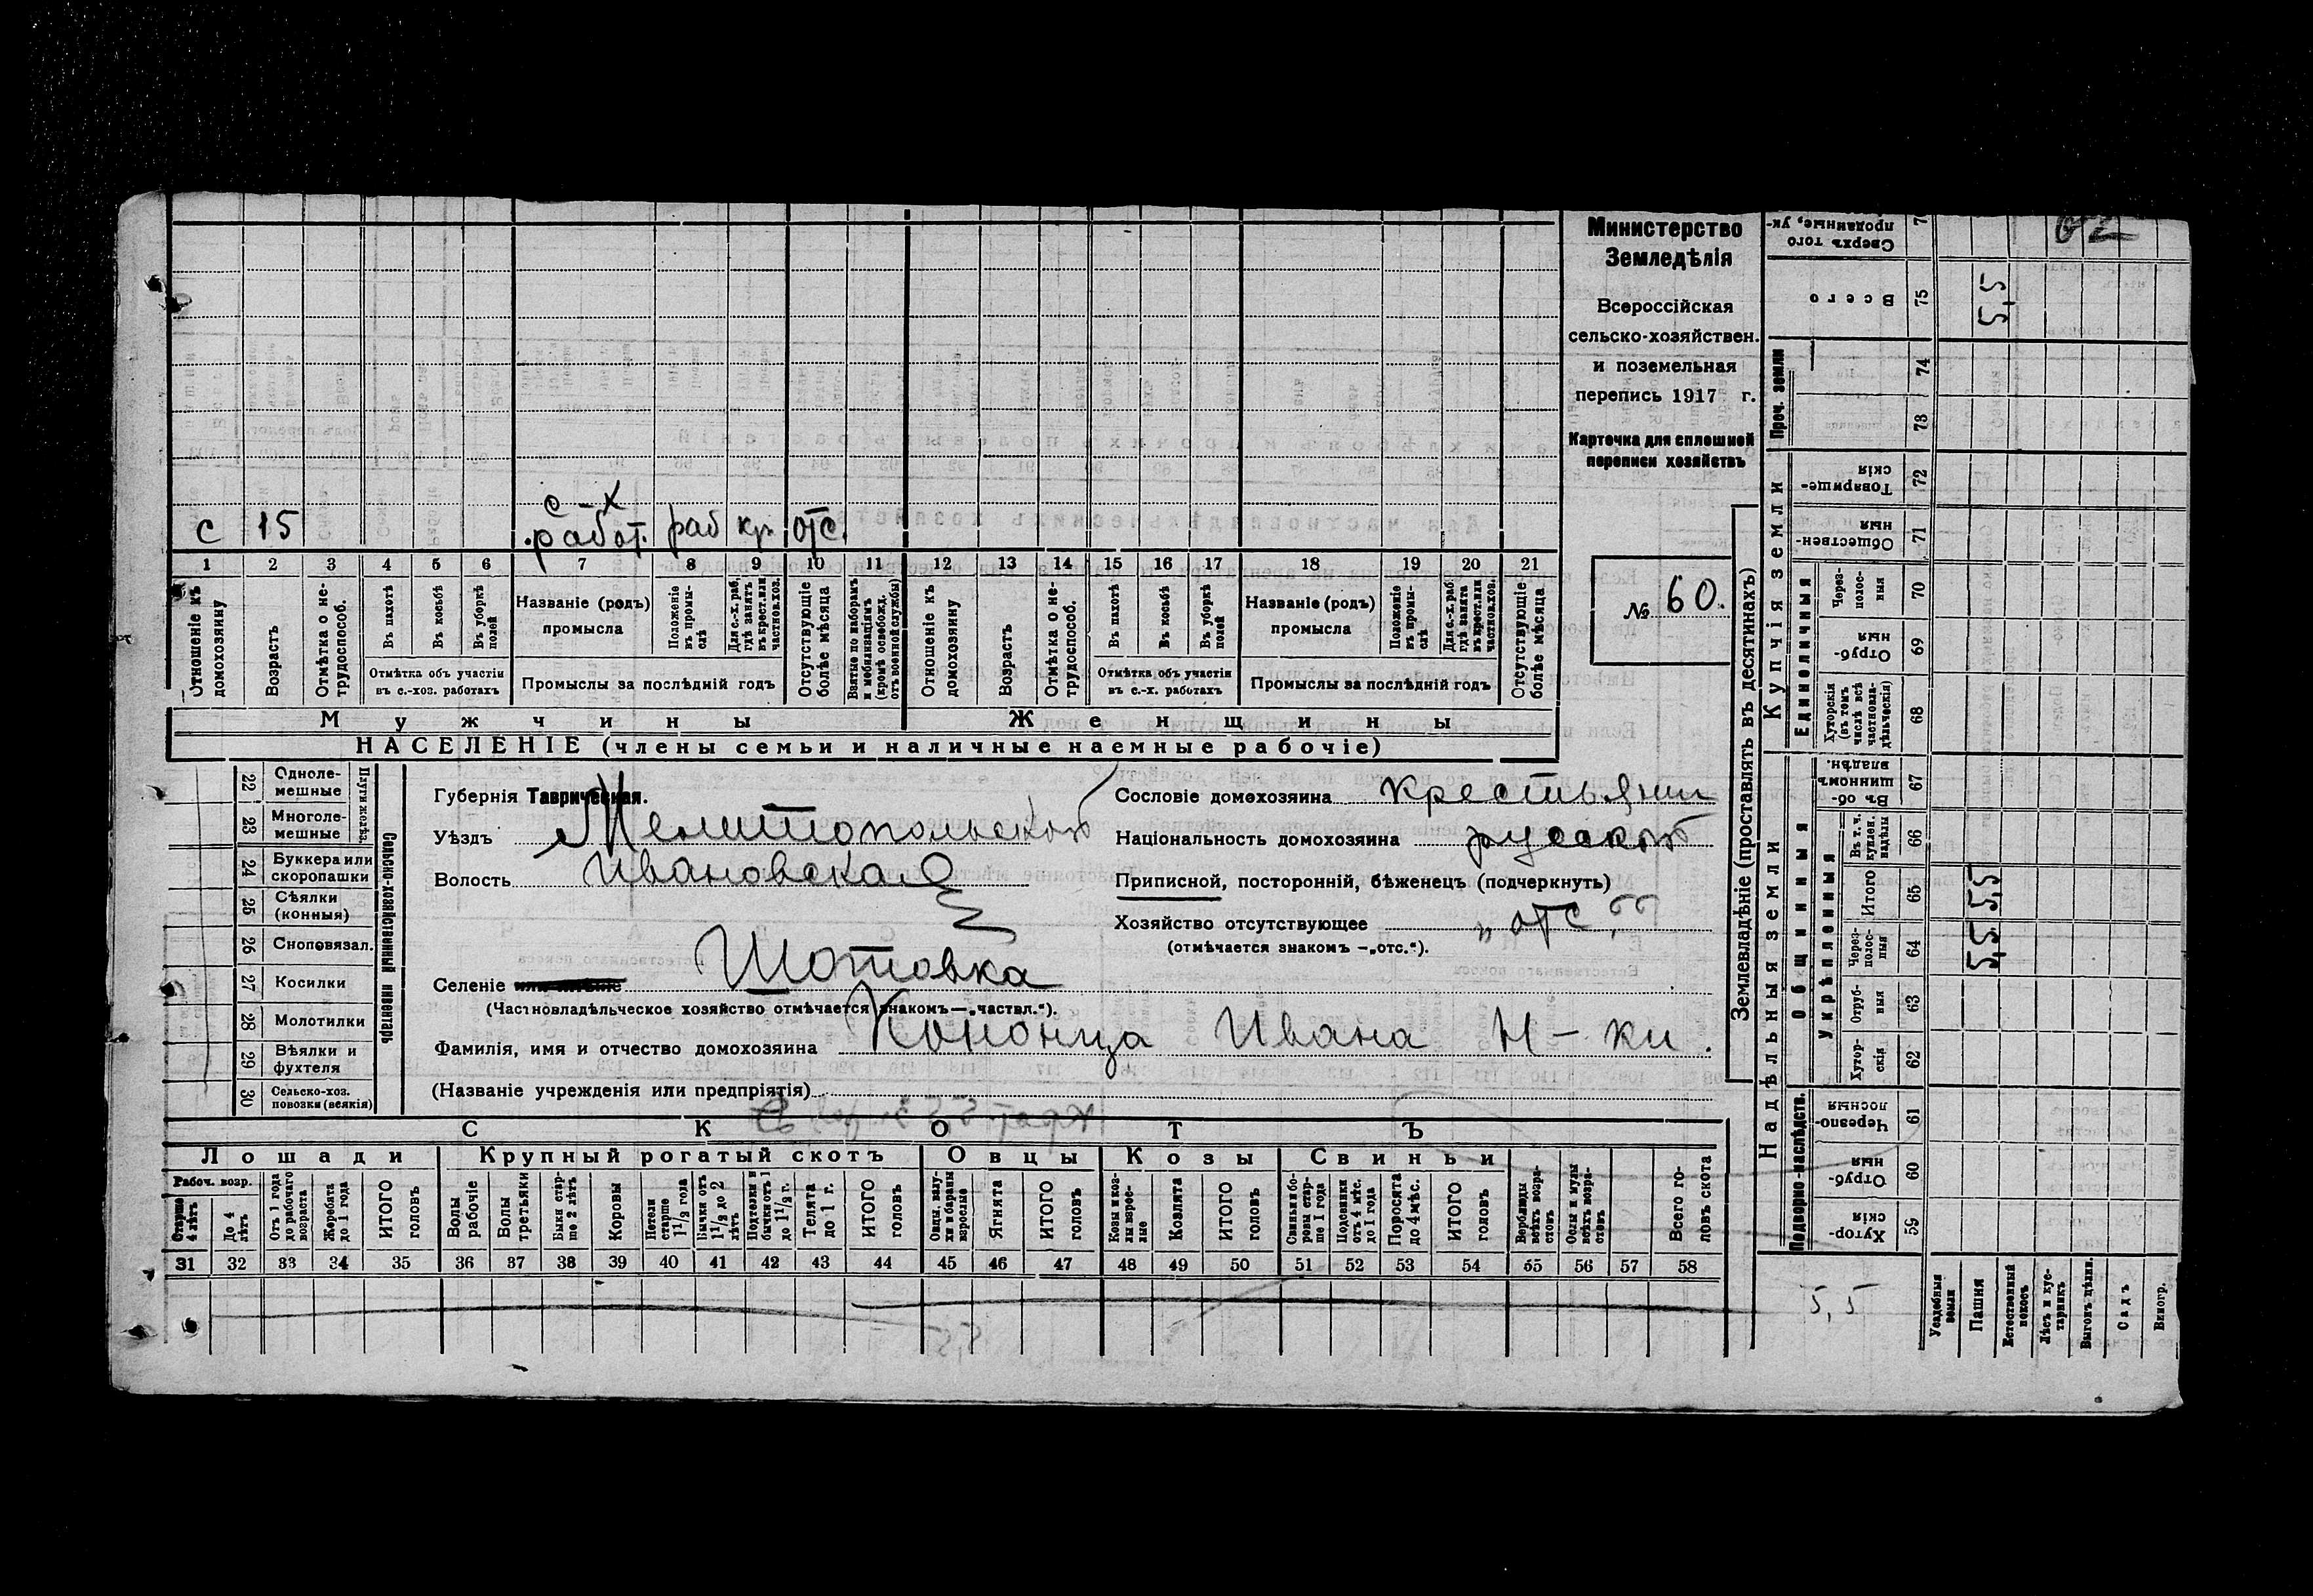 с 15 с-х работ. раб кр. отс.
1 2 3 4 5 6 7 8 9 10 11 12 13 14 15 16 17 18 19 20 21
Отношеніе къ домохозяину
Возрастъ
Отмѣтка о нетрудоспособ.
Въ пахотѣ
Въ косьбѣ
Въ уборкѣ полей
Отмѣтка объ участіи въ с.-хоз. работахъ
Названіе (родъ) промысла
Положеніе въ промыслѣ
Для с.-х. раб. гдѣ занятъ въ крест. или частнов. хоз.
Промыслы за послѣдній годъ
Отсутствующіе болѣе мѣсяца
Взятые по наборамъ и мобилизаціямъ (кромѣ освобожд. отъ военной службы)
Отношеніе къ домохозяину
Возрастъ
Отмѣтка о нетрудоспособ.
Въ пахотѣ
Въ косьбѣ
Въ уборкѣ полей
Отмѣтка объ участіи въ с.-х. работахъ
Названіе (родъ) промысла
Положеніе въ промыслѣ
Для с.-х. раб. гдѣ занята въ крест. или частнов. хоз.
Промыслы за послѣдній годъ
Отсутствующіе болѣе мѣсяца
Мужчины
Женщины
НАСЕЛЕНІЕ (члены семьи и наличные наемные рабочіе)
Министерство
Земледѣлія
Всероссійская
сельско-хозяйствен.
и поземельная
перепись 1917 г.
Карточка для сплошной
переписи хозяйствъ
№ 60.
Сельско-хозяйственный инвентарь
Плуги желѣз.
22 Однолемешные
23 Многолемешные
24 Буккера или скоропашки
25 Сѣялки (конныя)
26 Сноповязал.
27 Косилки
28 Молотилки
29 Вѣялки и фухтеля
30 Сельско-хоз. повозки (всякія)
Губернія Таврическая.
Уѣздъ Мелитопольской
Волость Ивановская
Селеніе Шотовка
(Частновладѣльческое хозяйство отмѣчается знакомъ—„частвл.“).
Фамилія, имя и отчество домохозяина Кононца Ивана Н-ки.
(Названіе учрежденія или предпріятія)
Сословіе домохозяина крестьянин
Національность домохозяина русской
Приписной, посторонній, бѣженецъ (подчеркнуть)
Хозяйство отсутствующее „отс.“
(отмѣчается знакомъ —„отс.“).
СКОТЪ
Лошади
Крупный рогатый скотъ
Овцы
Козы
Свиньи
Рабоч. возр.
Старше 4 лѣтъ
До 4 лѣтъ
Отъ 1 года до рабочаго возраста
Жеребята до 1 года
ИТОГО головъ
Волы рабочіе
Волы третьяки
Быки старше 2 лѣтъ
Коровы
Нетели старше 1 1/2 года
Бычки отъ 1 1/2 до 2 лѣтъ
Подтелки и бычки отъ 1 до 1 1/2 г.
Телята до 1 г.
ИТОГО головъ
Овцы, валухи и бараны взрослые
Ягнята
ИТОГО головъ
Козы и козлы взрослые
Козлята
ИТОГО головъ
Свиньи и боровы старше 1 года
Подсвинки отъ 4 мѣс. до 1 года
Поросята до 4 мѣс.
ИТОГО головъ
Верблюды всѣхъ возрастовъ
Ослы и мулы всѣхъ возрастовъ
Всего головъ скота
31 32 33 34 35 36 37 38 39 40 41 42 43 44 45 46 47 48 49 50 51 52 53 54 55 56 57 58
Землевладѣніе (проставлять въ десятинахъ)
Надѣльныя земли
Купчія земли
Проч. земли
Подворно-наслѣдств.
Общинныя
Укрѣпленныя
Единоличныя
Сверхъ того проданные, ук-
Всего 75 5,5
74
73
Товарищескія 72
Общественныя 71
Черезполосныя 70
Отрубныя 69
Хуторскія (въ томъ числѣ всѣ частновладѣльческія) 68
Въ общинномъ владѣн. 67
Въ т. ч. куплен. надѣлы 66
Итого 65 5,5
Черезполосныя 64 5,5
Отрубныя 63
Хуторскія 62
Черезполосныя 61
Отрубныя 60
Хуторскія 59
5,5
Усадебныя земли
Пашня
Естественный покосъ
Лѣсъ и кустарникъ
Выгонъ цѣлин.
Садъ
Виногр.